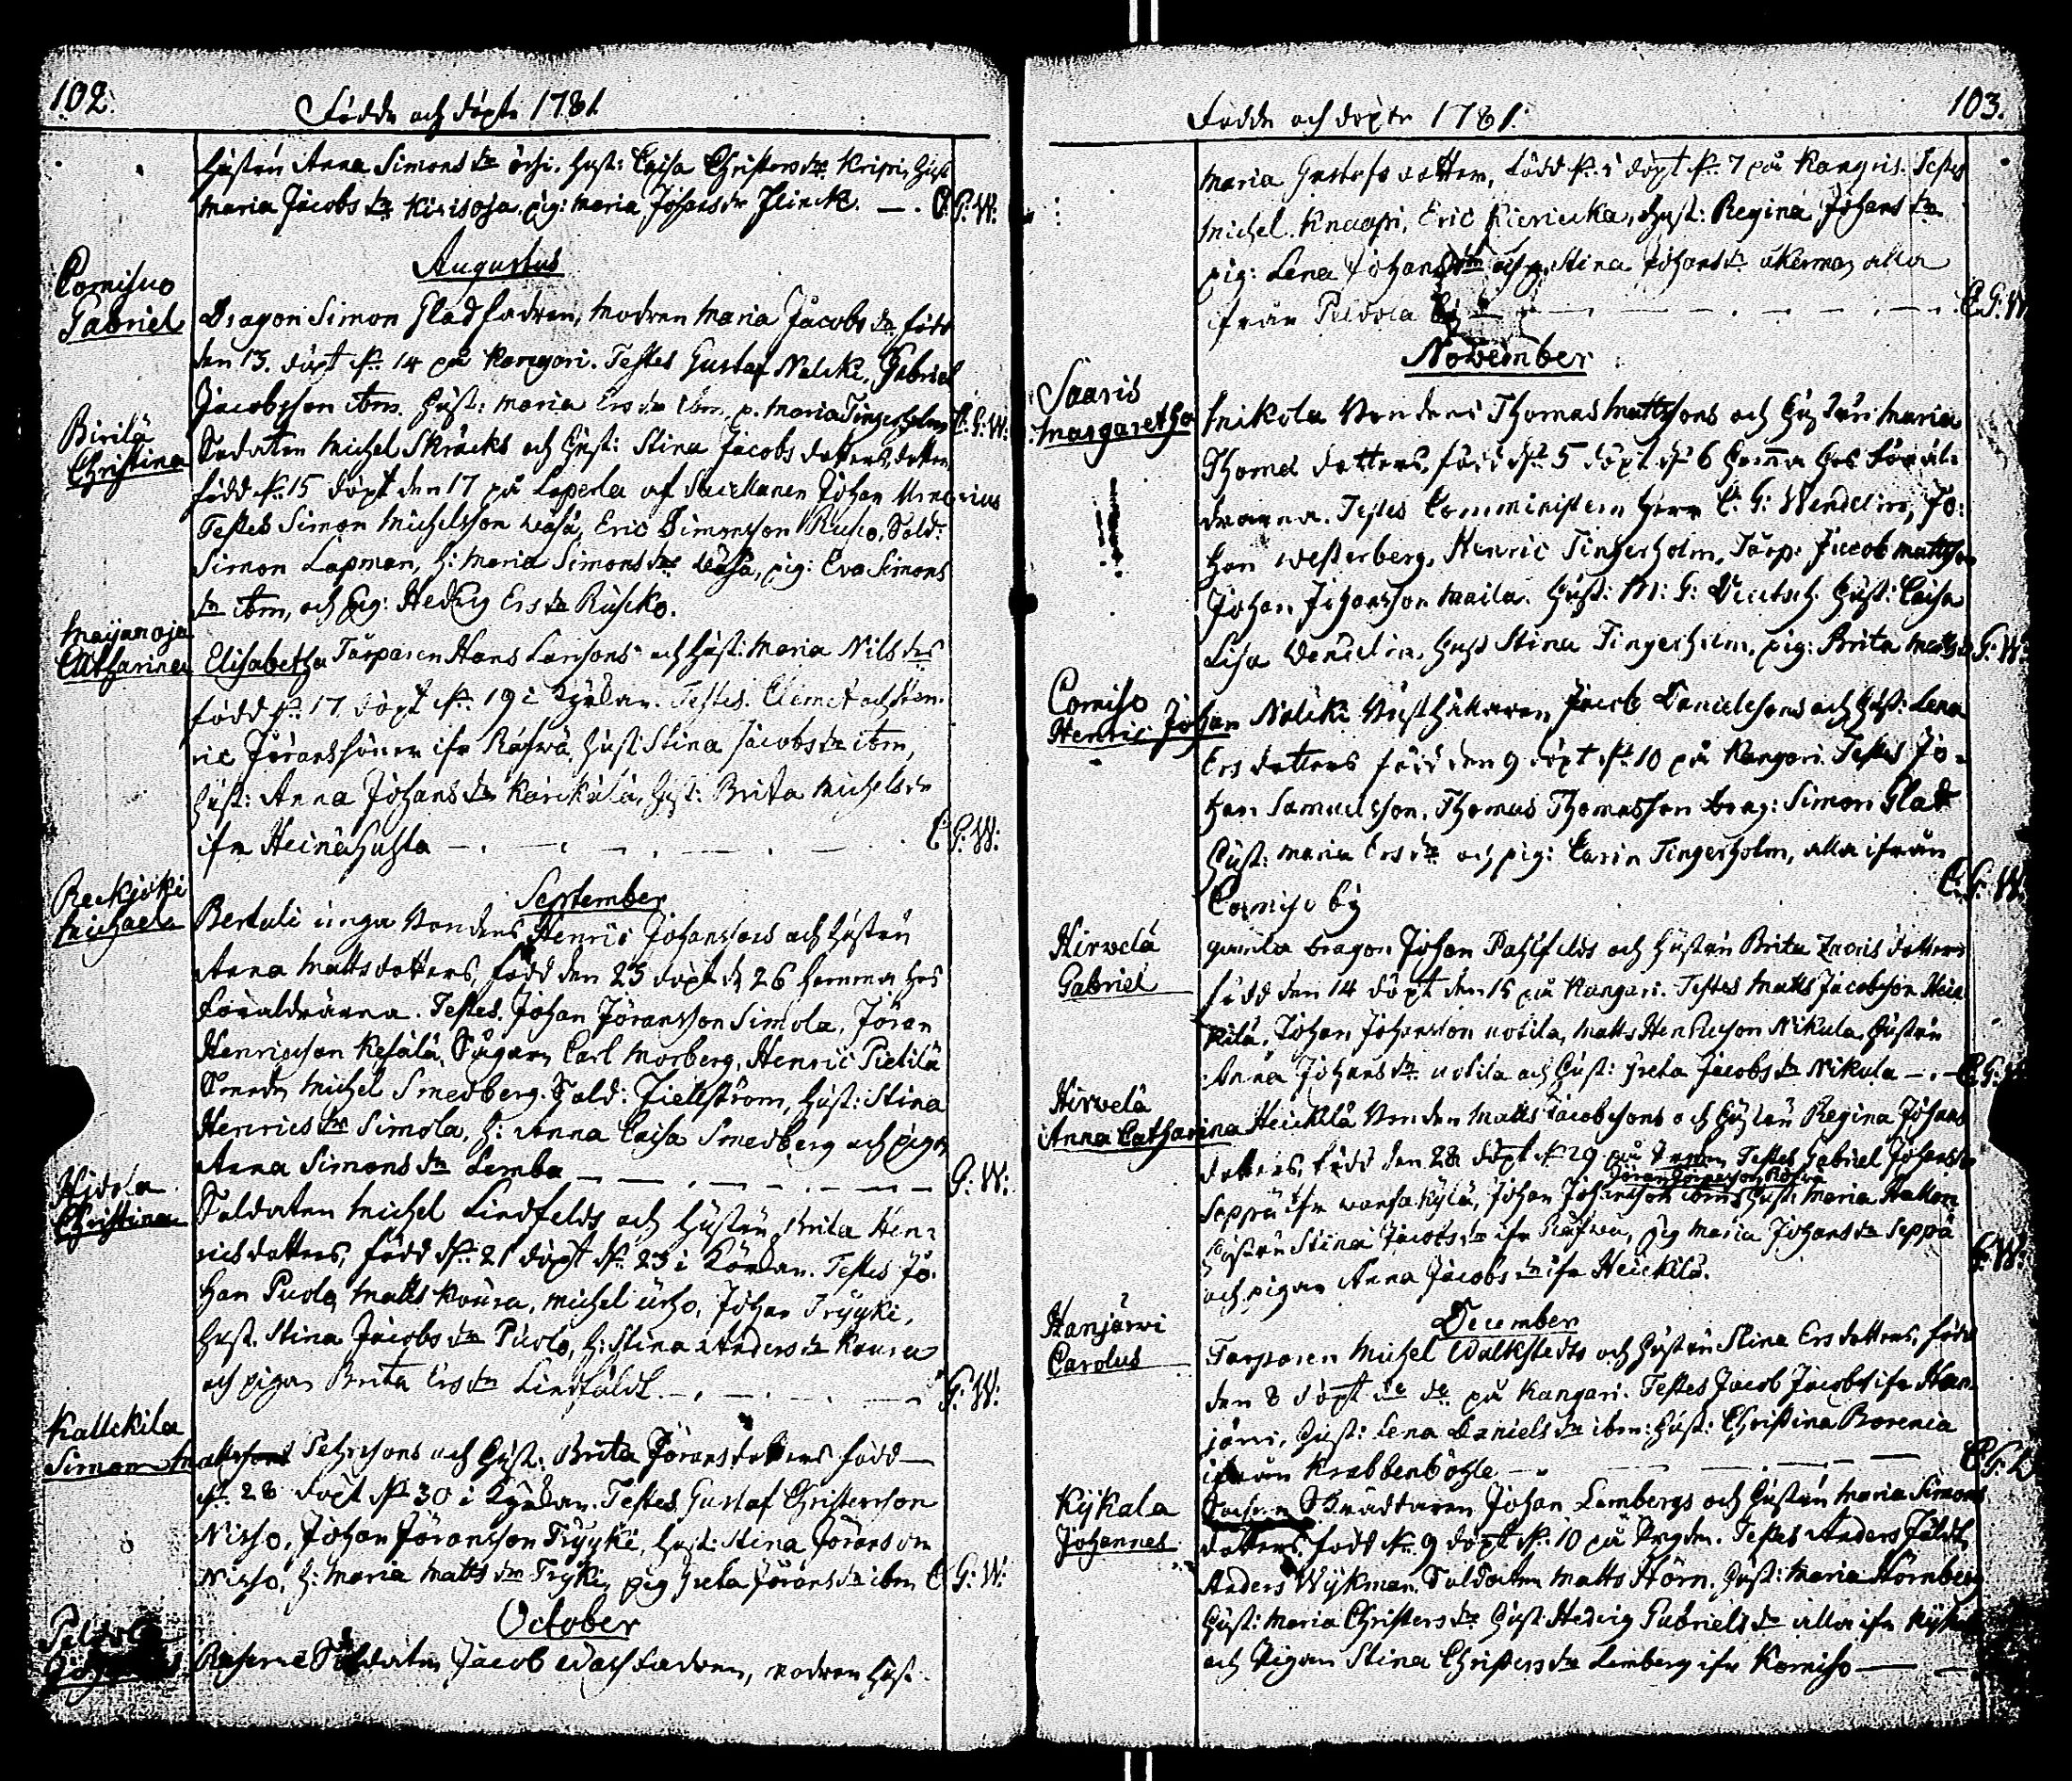 102.
Födde och döpte 1781.
Hustrun Anna Simons dr ibid. Hust: Caisa Christers dr Krispi, Hust
Maria Jacobs dr Kirisoja pig: Maria Johans dr Flinck. — . C. G. W.
Augustus
Comisuo
Gabriel
Dragon Simon Glad fadren, modren Maria Jacobs dr född
den 13. döpt d. 14 på Kangari. Testes Gustaf Nalcki, Gabriel
Jacobsson ibm. Hust: Maria Ers dr ibm, p. Maria Tingerholm C. G: W:
Birilä
Christina
Soldaten Michel Skräcks och Hust: Stina Jacobs dotters, dotter
född d. 15 döpt den 17 på Laperla af Johan
Testes Simon Michelsson Wasa, Eric Simonsson Rusco, Sold:
Simon Lapman, h: Maria Simons dr Wasa, pig: Eva Simons
dr ibm, och pig: Hedvig Ers dr Rusko.
Maijanoja
Catharina Elisabetha Torparen Hans Larssons och Hust: Maria Nils drs
född d. 17. döpt d. 19 i Kyrkan. Testes. Clemet och Hen-
ric Jöranssöner ifr Räfwä, Hust: Stina Jacobs dr ibm,
Hust: Anna Johans dr Karickala, Hust: Brita Michels dr
ifr Heinähuhta — . — . — . — . C. G: W:
September
Reckjoki
Michael
Bertuli unga Bondens Henric Johanssons och Hustru
Anna Matts dotters, född den 25 döpt d 26 hemma hos
Föräldrarna. Testes. Johan Jöransson Simola, Jöran
Henricsson Kesälä, Sågaren Carl Morberg, Henric Pietilä
Smeden Michel Smedberg. Sold: Fiellström, Hust: Stina
Henrics dr Simola, h: Anna Caisa Smedberg och pigan
Anna Simons dr Lemba — — . — . — — G: W:
Hidola
Christina
Soldaten Michel Lindfelds och Hustru Brita Hen-
ricsdotters, född d. 21 döpt d. 23 i Körkan. Testes Jo-
han Puolo, Matts Koura, Michel Urho, Johan Tryyki,
Hust. Stina Jacobs dr Puolo, h: Stina Anders dr Koura
och pigan Brita Ers dr Lindfäldt — . — . — G: W:
Kallckila
Simon Mattssons Pehrssons och Hust: Brita Jöransdotters född —
d. 28 döpt d. 30 i Kyrkan. Testes Gustaf Christersson
Nisso, Johan Jöransson Tryyki, Hust: Stina Jörans dr
Nisso, h: Maria Matts dr Tryki, pig Greta Jörans dr ibm C G: W:
October
Reserve Soldaten Jacob Wass fadren, modren Hust.
103.
Födde och döpte 1781.
Maria Gustafs dotter, född d. 5 döpt d. 7 på Kangari. Testes
Michel Knaapi, Eric Kieriicka, Hust: Regina Johans dr
pig: Lena Johans dr och p. Stina Johans dr Åkerman alla
ifrån Peldola By — . — . — . — . C. G: W
November
Saaris
Margaretha
Mikola Bondens Thomas Mattssons och Hustrus Maria
Thomas dotters, född d. 5 döpt d. 6 hemma hos Föräl-
drarna. Testes Comministern Herr C. G: Wendelin, Jo-
han Westerberg, Henric Tingerholm, Torp: Jacob Mattsson
Johan Johansson Maila. Hust: M: G: Hust: Caisa
Lisa Wendelin, Hust Stina Tingerholm, pig: Brita Matts dr G: W:
Comiso
Henric Johan Nalcki Rusthållaren Jacob Danielssons och Hust: Lena
Ers dotters född den 9 döpt d. 10 på Kangari. Testes Jo-
han Samuelsson, Thomas Thomasson Drag: Simon Glad
Hust: Maria Ers dr och pig: Carin Tingerholm, alla ifrån
Comiso by C. G. W.
Hirvelä
Gabriel
gamla Dragon Johan Pahlfelds och Hustru Brita Zacris dotters
född den 14 döpt den 15 på Kangari. Testes Matts Jacobsson Heic
kilä, Johan Johansson Uotila, Matts Henricsson Nikula, Hustru
Anna Johans dr Uotila och Hust: Greta Jacobs dr Nikula — . — C. G: W
Hirvelä
Anna Catharina Heickilä Bonden Matts Jacobssons och Hustru Regina Johans
dotters, född den 28 döpt d. 29 på Testes Gabriel Johansson
Jöran Jöransson Räfwä
Seppä ifr Wanhakylä, Johan Johansson ibm, Hust: Maria
Hustru Stina Jacobs dr ifr Räfwä, pig Maria Johans dr Seppä
och pigan Anna Jacobs dr ifr Heickilä. G: W:
December
Hanjärwi
Carolus
Torparen Michel Walkstedts och Hustru Stina Ers dotters, född
den 8 döpt de de på Kangari. Testes Jacob Jacobss ifr Han-
järvi, Hust: Lena Daniels dr ibm: Hust: Christina Borenia
ifrån Krabbenböhle — . — . — — C G: W
Kykala
Johannes
Socken Skräddaren Johan Lembergs och Hustru Maria Simons
dotters, född d. 9 döpt d. 10 på Testes Anders Fäldt,
Anders Wijkman, Soldaten Matts Störn, Hust: Maria Störnberg
Hust: Maria Christers dr Hust Hedvig Gabriels dr alla ifr Kykala
och Pigan Stina Christers dr Lemberg ifr Komiso — —